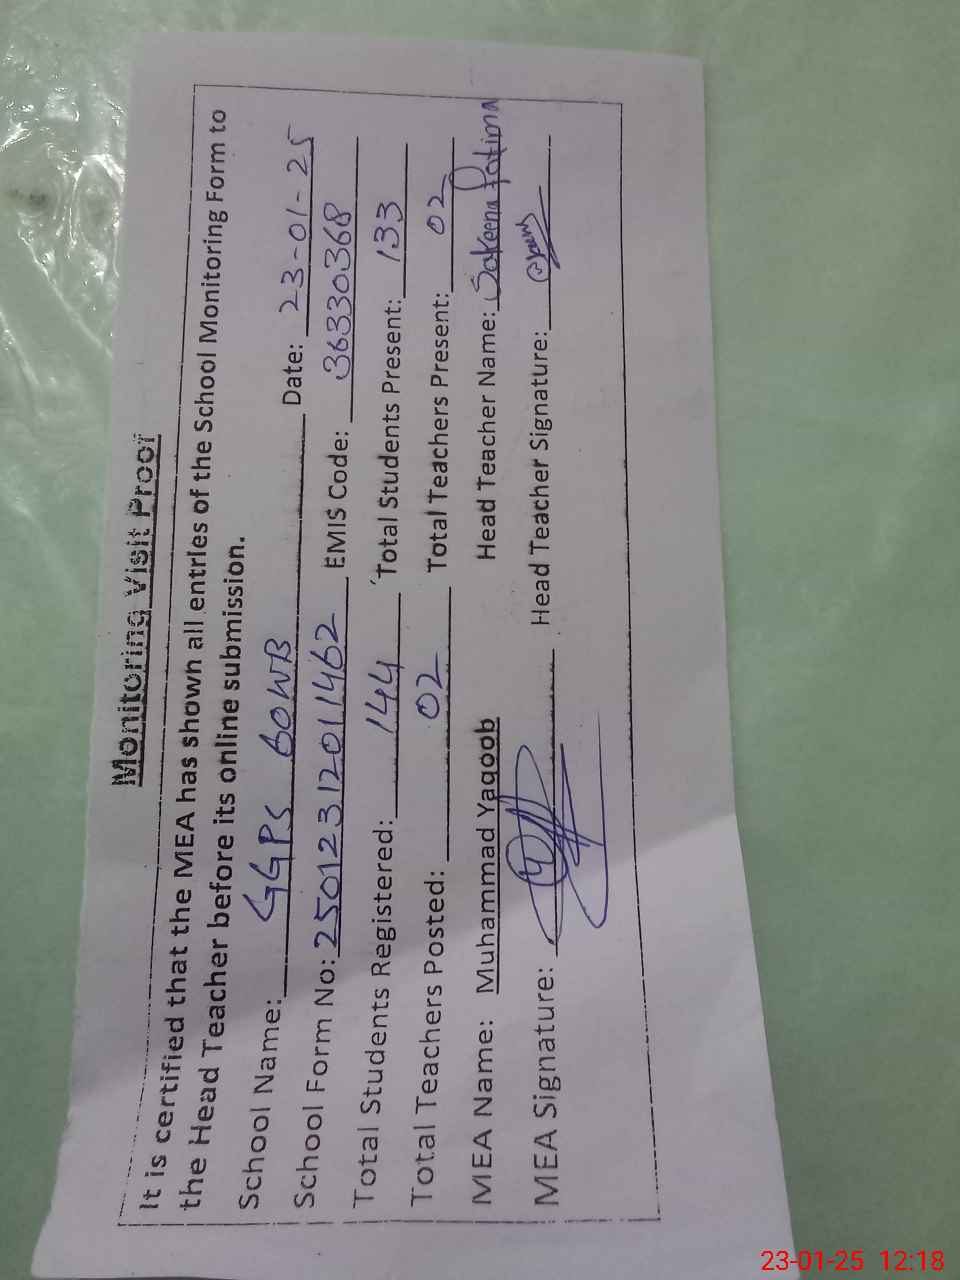 Monitoring Visit Proof
It is certified that the MEA has shown all entries of the School Monitoring Form to
the Head Teacher before its online submission.
School Name: GGPS 60WB Date: 23-01-25
School Form No: 25012312011462 EMIS Code: 36330368
Total Students Registered: 144 Total Students Present: 133
Total Teachers Posted: 02 Total Teachers Present: 02
MEA Name: Muhammad Yaqoob Head Teacher Name: Sakeena Fatima
MEA Signature: Head Teacher Signature:
23-01-25 12:18